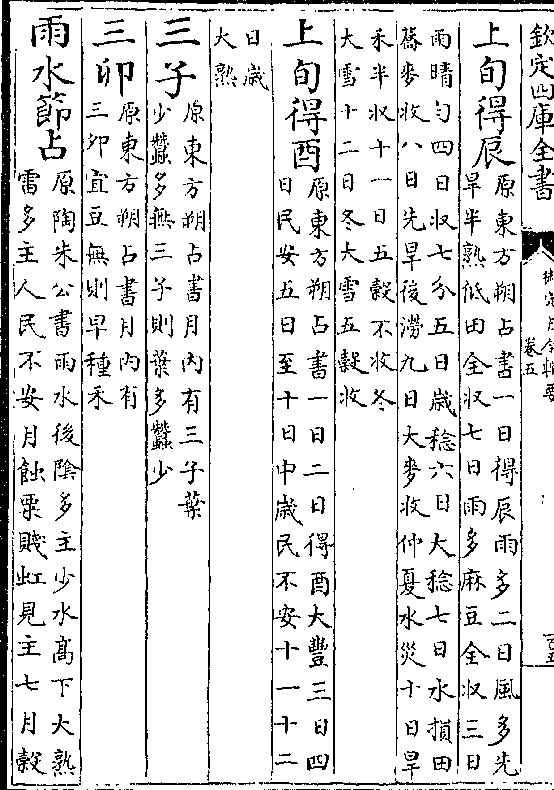 欽定四庫全書
卷五
上旬得辰 原東方朔占書一日得辰雨多二日風多先
旱半熟低田全収七日雨多麻豆全収三日
雨晴勻四日収七分五日歳稔六日大稔七日水損田
蕎麥收八日先旱後澇九日大麥收仲夏水災十日旱
禾半収十一日五穀不收冬
大雪十二日冬大雪五穀收
上旬得酉 原東方朔占書一日二日得酉大豐三日四
日民安五日至十日中歳民不安十一十二
日歳
大熟
三子 原東方朔占書月内有三子葉
少蠶多無三子則葉多蠶少
三卯 原東方朔占書月内有
三卯宜豆無則早種禾
雨水節占 原陶朱公書雨水後隂多主少水髙下大熟
雷多主人民不安月蝕粟賤虹見主七月穀